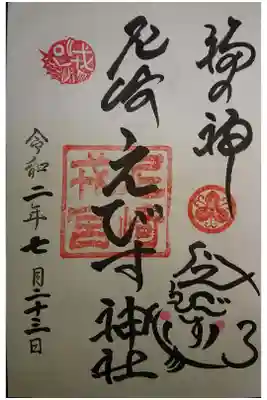 福の神
尼崎えびす神社
尼崎戎宮
令和二年七月二十三日